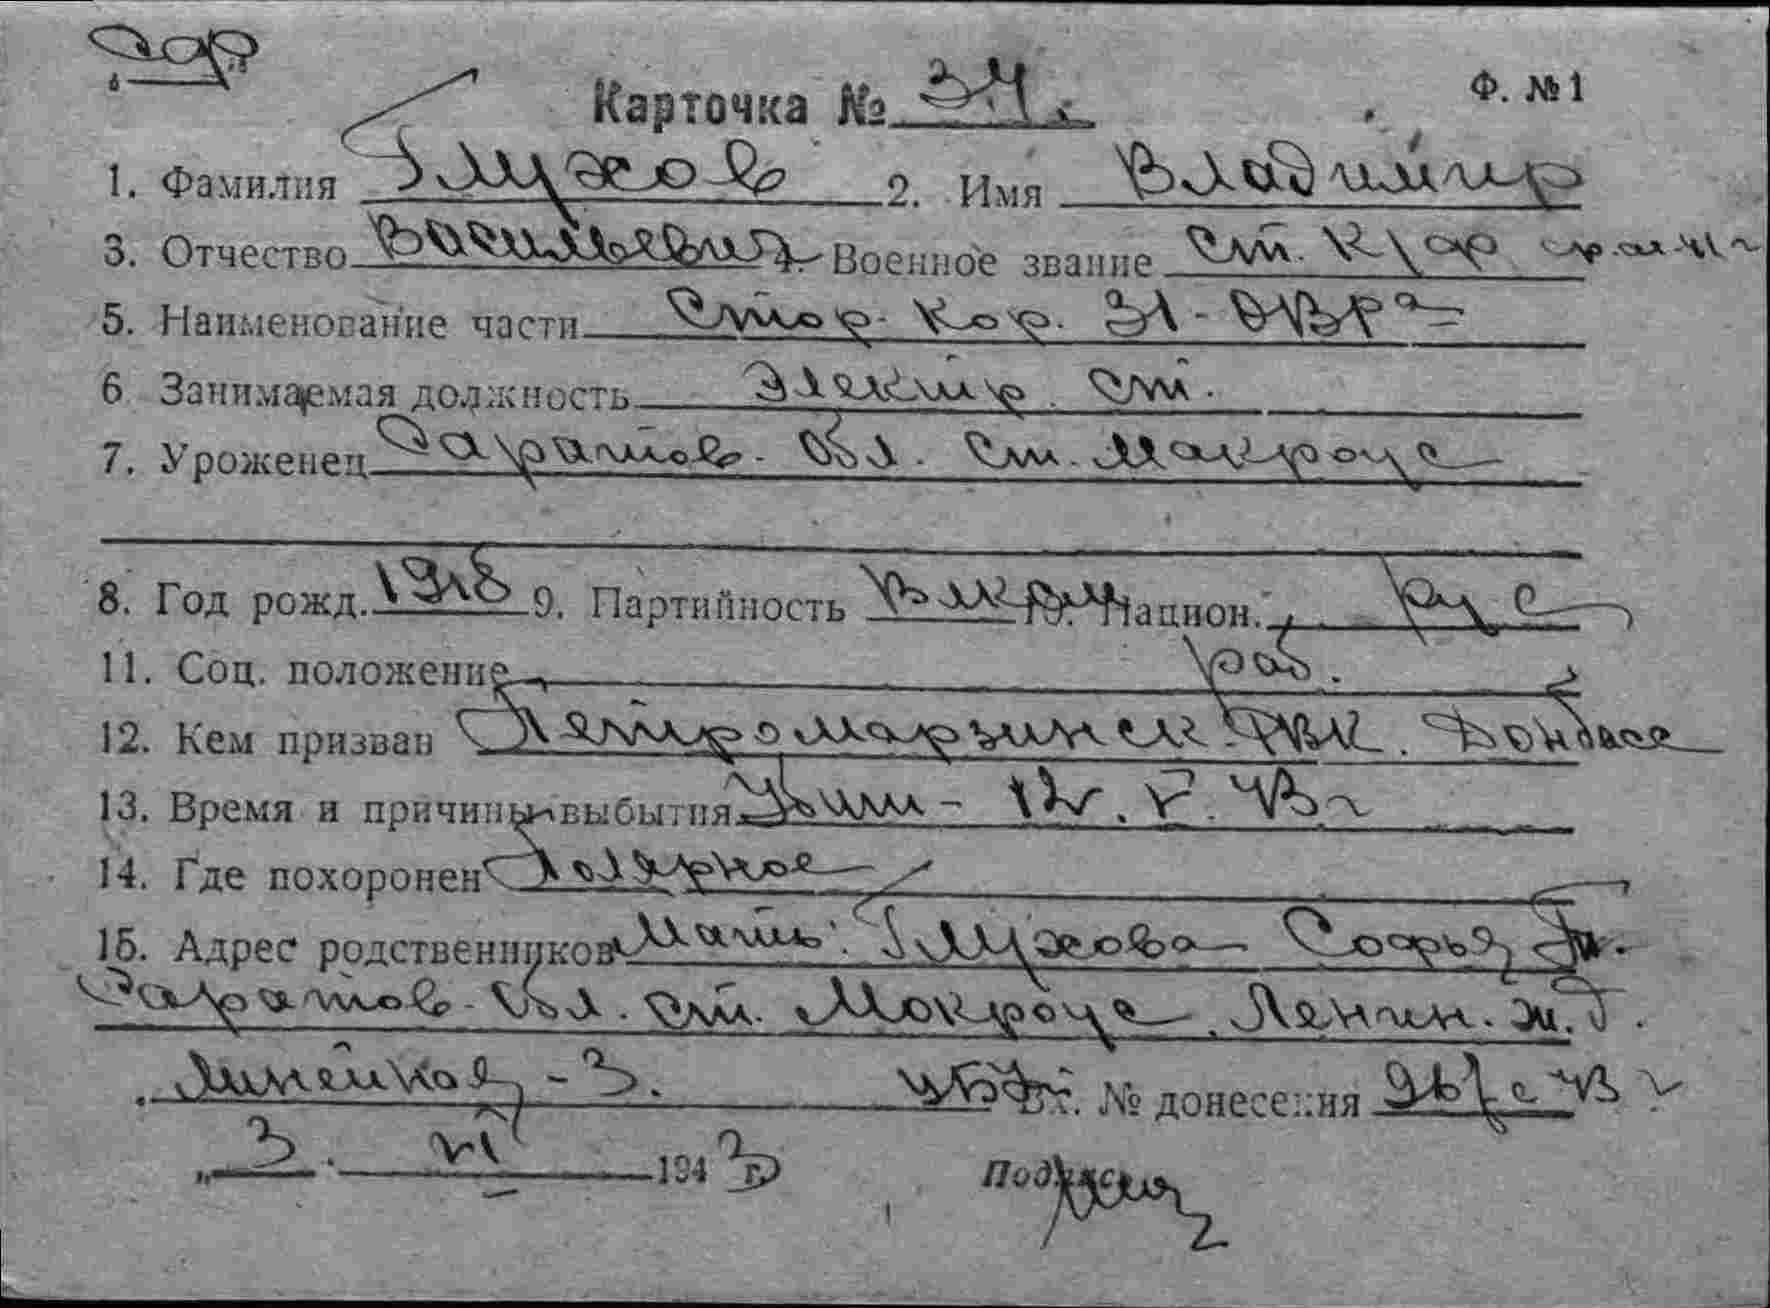 Карточка № 34. Ф. № 1
1. Фамилия Глухов 2. Имя Владимир
3. Отчество Васильевич 4. Военное звание Ст. К/ф
5. Наименование части Стор. Кор. 31-ОВРа
6. Занимаемая должность Электр. ст.
7. Уроженец Саратов. Обл. ст. Макроус
8. Год рожд. 1918 9. Партийность ВЛКСМ 10. Национ. рус
11. Соц. положение раб.
12. Кем призван РВК. Донбасс
13. Время и причины выбытия Убит - 12. V. 43 г
14. Где похоронен Полярное
15. Адрес родственников Мать: Глухова Софья
Саратов. Обл. ст. Мокроус. Ленин. ж.д.
Линейная - 3. Вх. № донесения с 43 г
„ 3. VI 1943 г.
Подпись